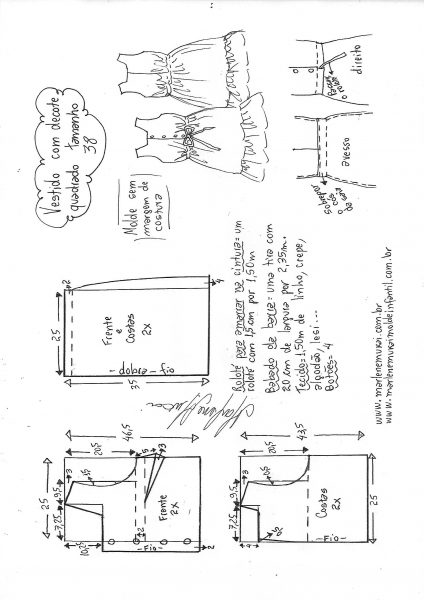 Vestido com decote
quadrado tamanho
38
Molde sem
margem de
costura
direito
avesso
Rolote para amarrar na cintura= um
rolote com 1,5 cm por 1,50m
Babado da barra= uma tira com
20 cm de largura por 2,25m.
Tecido= 1,50m de linho, crepe,
algodão, lesi...
Botões= 4
www.marlenemukai.com.br
www.marlenemukaimoldeinfantil.com.br
2
4
25
Frente
e
Costas
2x
dobra
-fio-
35
46,5
20,5
5
3
25
9,5
7,25
10,25
2
Frente
2x
-Fio-
2
43,5
20,5
3
9,5
7,25
4
Costas
2x
-Fio-
25